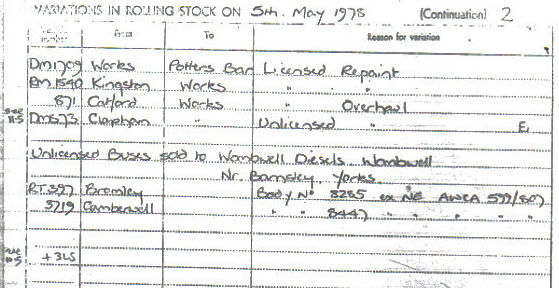 VARIATIONS IN ROLLING STOCK ON 5th. May 1978 (Continuation) 2
From To Reason for variation
DM1709 Works Potters Bar Licensed Repaint
RM1540 Kingston Works " "
871 Catford Works " Overhaul
DMS73 Clapham " Unlicensed " E,
Unlicensed Buses sold to Wombwell Diesels. Wombwell
Nr. Barnsley. Yorks
RT397 Bromley Body No 8285 ex NE AWCA 599/807
3719 Camberwell " " 8447 " " " " "
+3LS